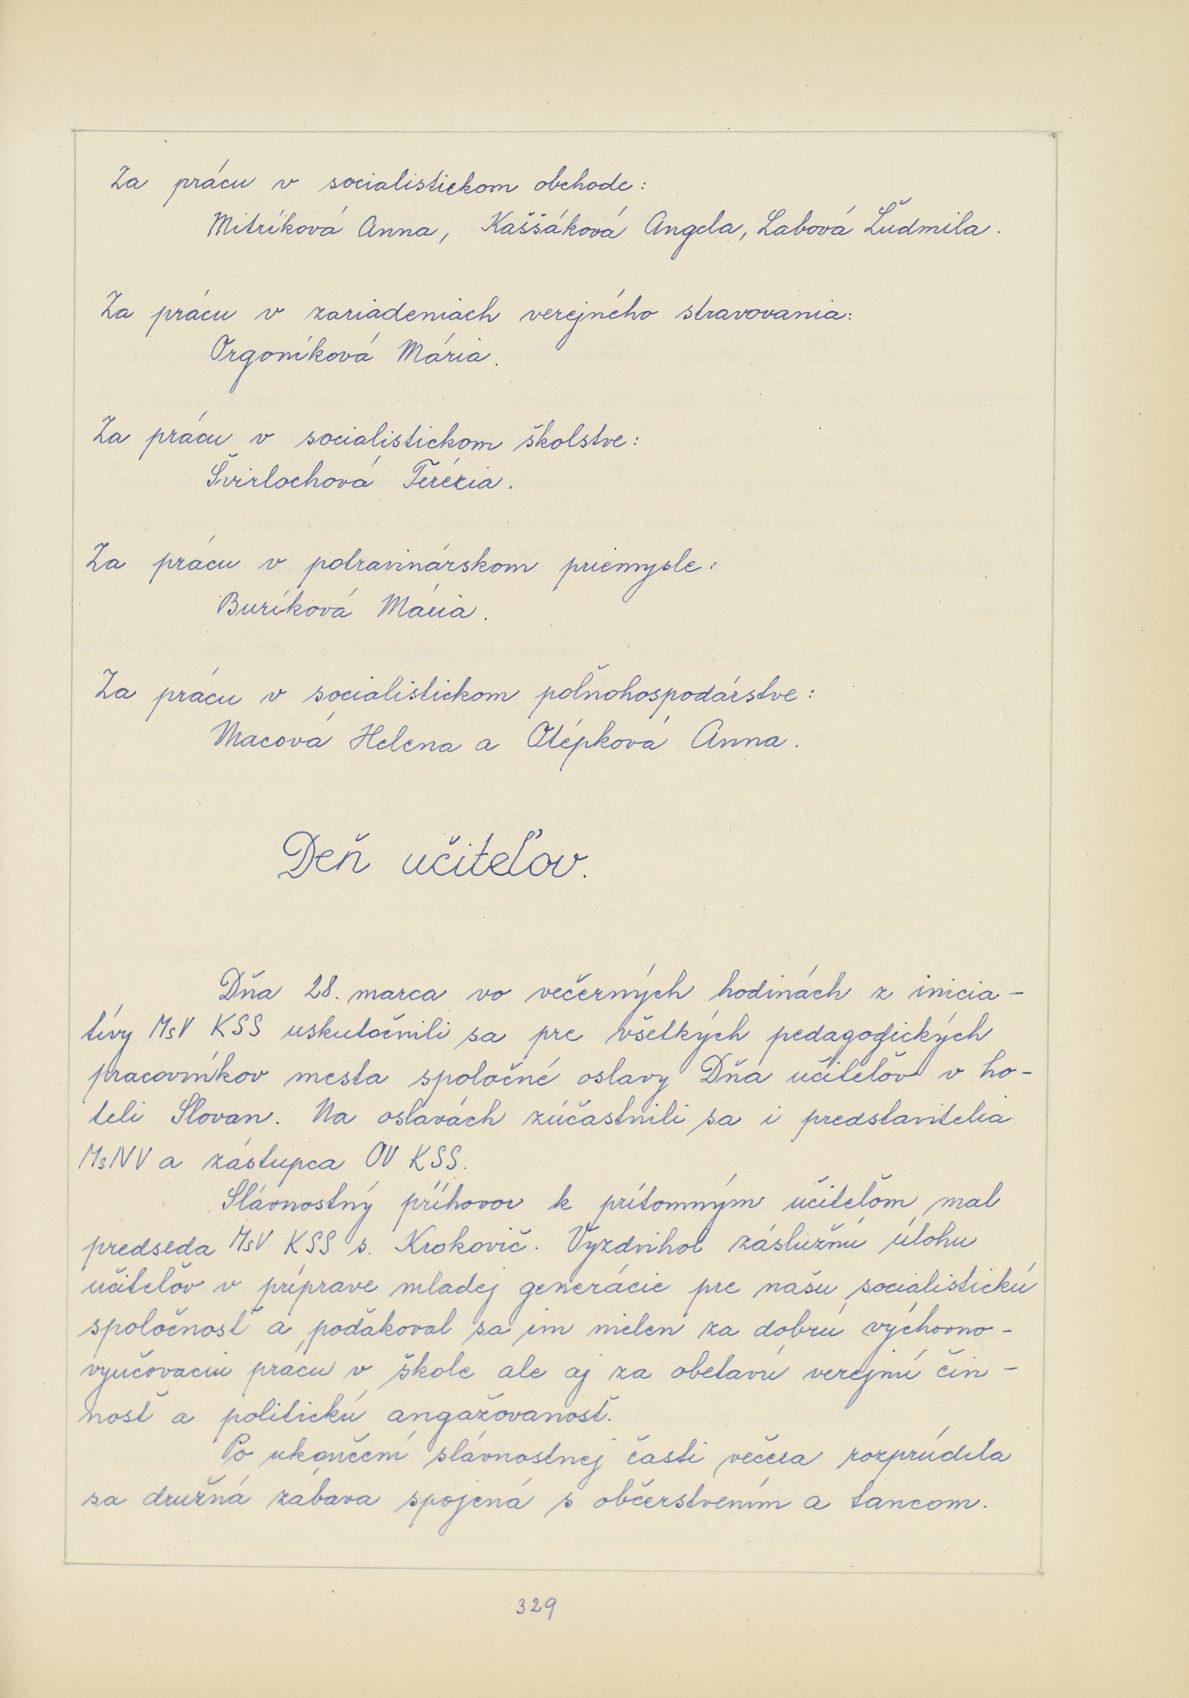 Za prácu v socialistickom obchode:
Mitríková Anna, Kaššáková Angela, Labová Ľudmila.
Za prácu v zariadeniach verejného stravovania:
Orgoníková Mária.
Za prácu v socialistickom školstve:
Švirlochová Terézia.
Za prácu v potravinárskom priemysle:
Buríková Mária.
Za prácu v socialistickom poľnohospodárstve:
Macová Helena a Otépková Anna.
Deň učiteľov.
Dňa 28. marca vo večerných hodinách z inicia-
tívy MsV KSS uskutočnili sa pre všetkých pedagogických
pracovníkov mesta spoločné oslavy Dňa učiteľov v ho-
teli Slovan. Na oslavách zúčastnili sa i predstavitelia
MsNV a zástupca OV KSS.
Slávnostný príhovor k prítomným učiteľom mal
predseda MsV KSS s. Krokovič. Vyzdvihol záslužnú úlohu
učiteľov v príprave mladej generácie pre našu socialistickú
spoločnosť a poďakoval sa im nielen za dobrú výchovno-
vyučovaciu prácu v škole ale aj za obetavú verejnú čin-
nosť a politickú angažovanosť.
Po ukončení slávnostnej časti večera rozprúdila
sa družná zábava spojená s občerstvením a tancom.
329